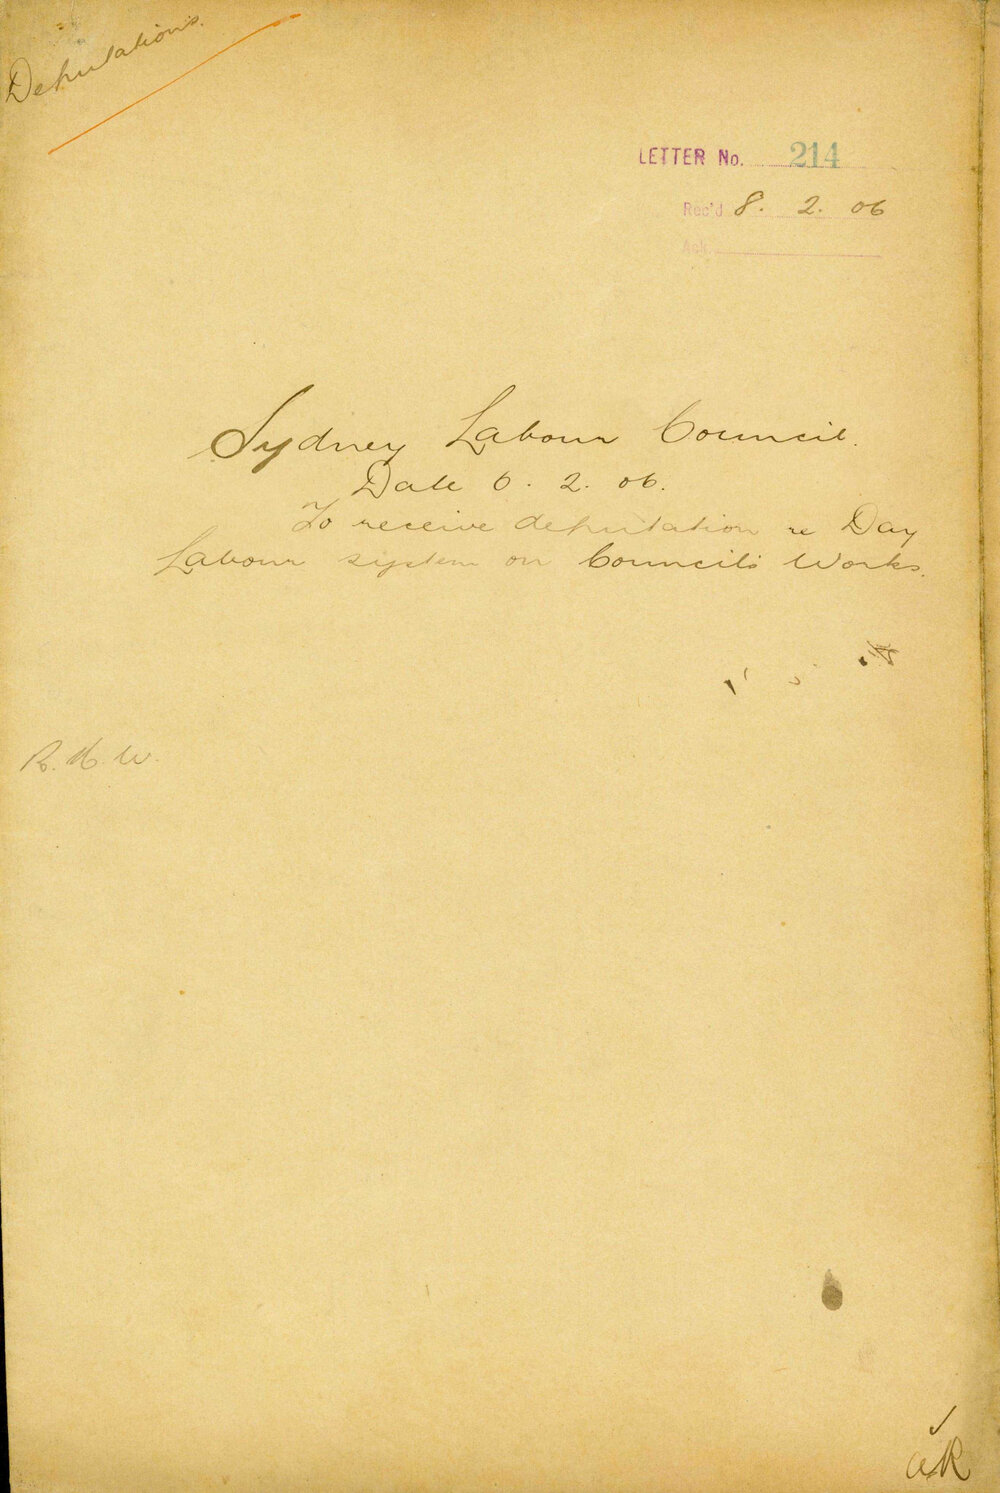 Deputations.
LETTER No. 214
Rec'd 8. 2. 06
Ack.
Sydney Labour Council.
Date 6. 2. 06.
To receive deputation re Day
Labour system on Council's Works.
R. H. W.